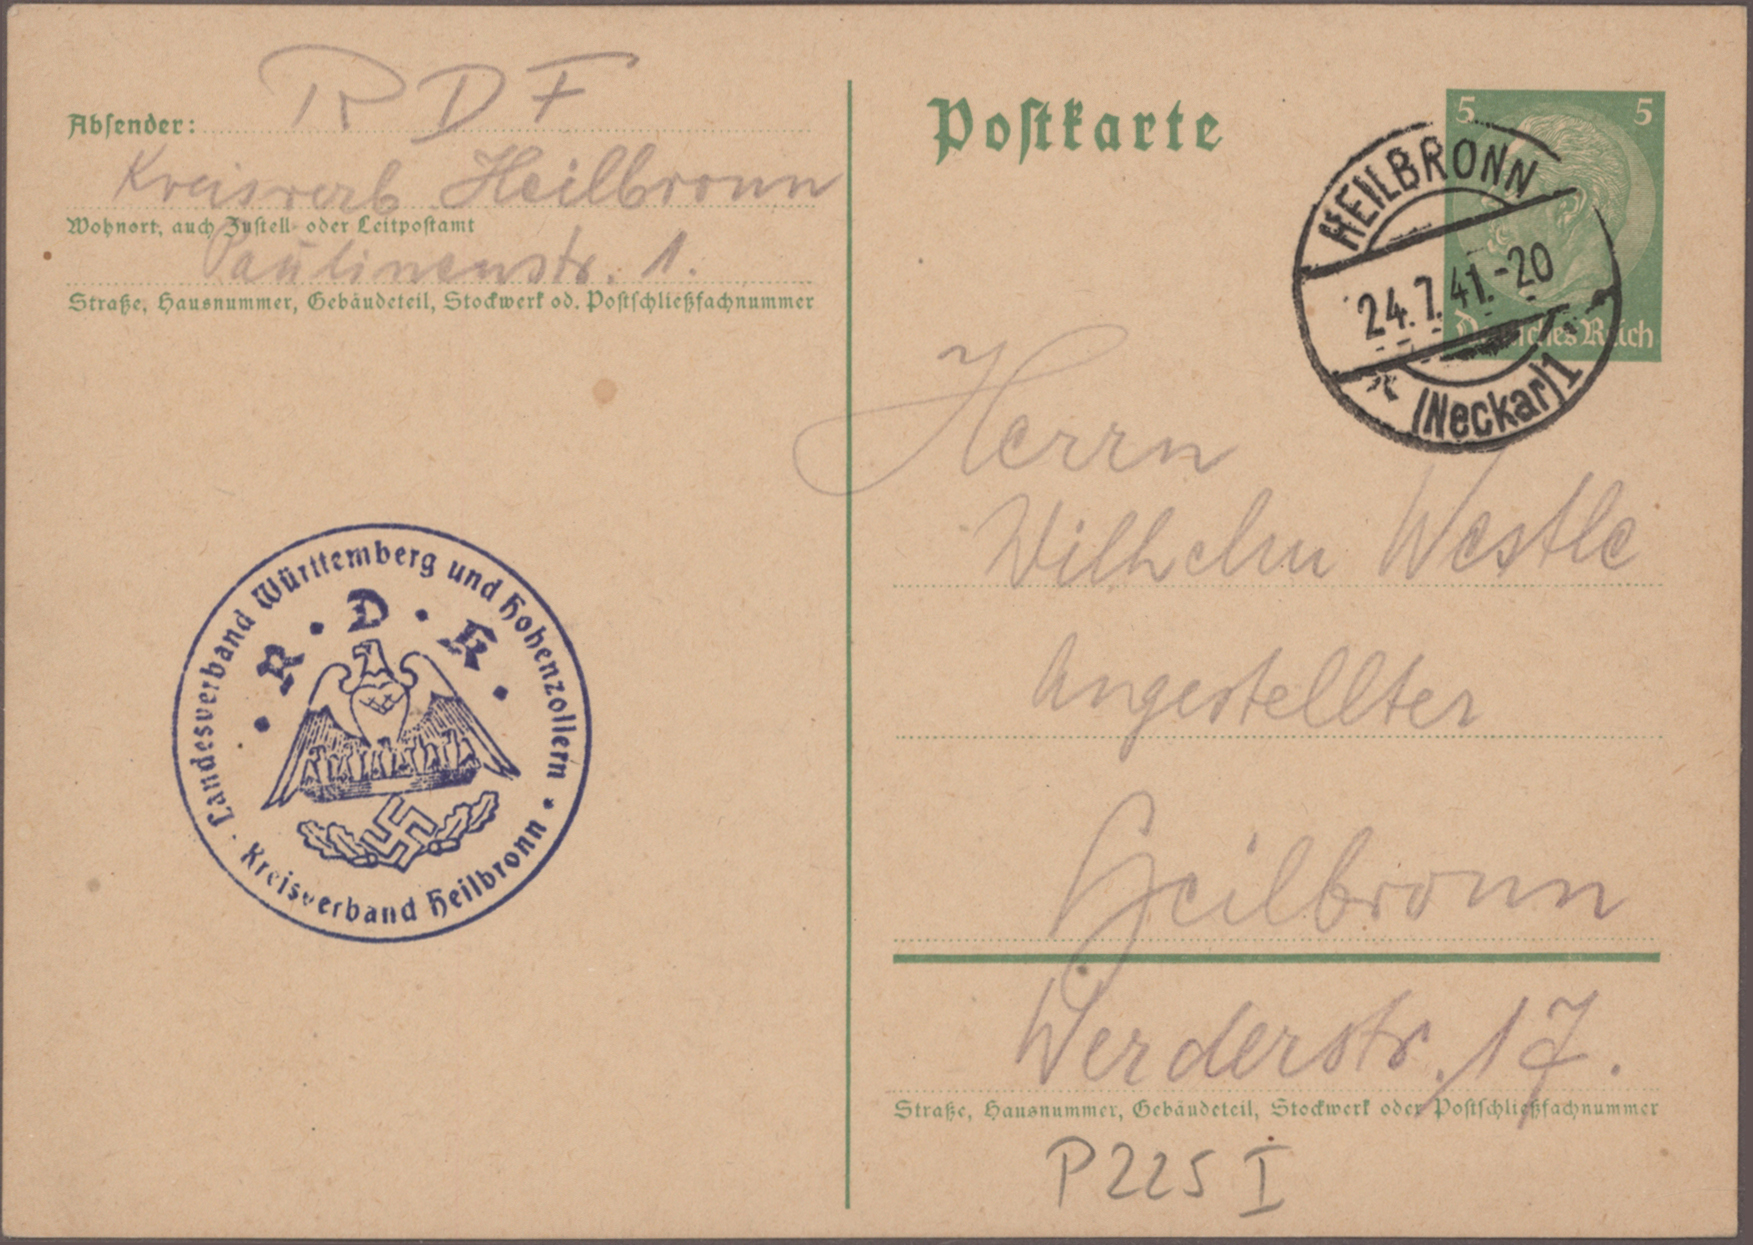 Absender: RDF
Kreisverb Heilbronn
Wohnort, auch Zustell- oder Leitpostamt
Paulinenstr. 1.
Straße, Hausnummer, Gebäudeteil, Stockwerk od. Postschließfachnummer
Landesverband Württemberg und Hohenzollern
R·D·K
Kreisverband Heilbronn
Postkarte
5 5
Deutsches Reich
HEILBRONN
24.7.41.-20
(Neckar)1
Herrn
Wilhelm Westle
Angestellter
Heilbronn
Werderstr. 17.
Straße, Hausnummer, Gebäudeteil, Stockwerk oder Postschließfachnummer
P225 I